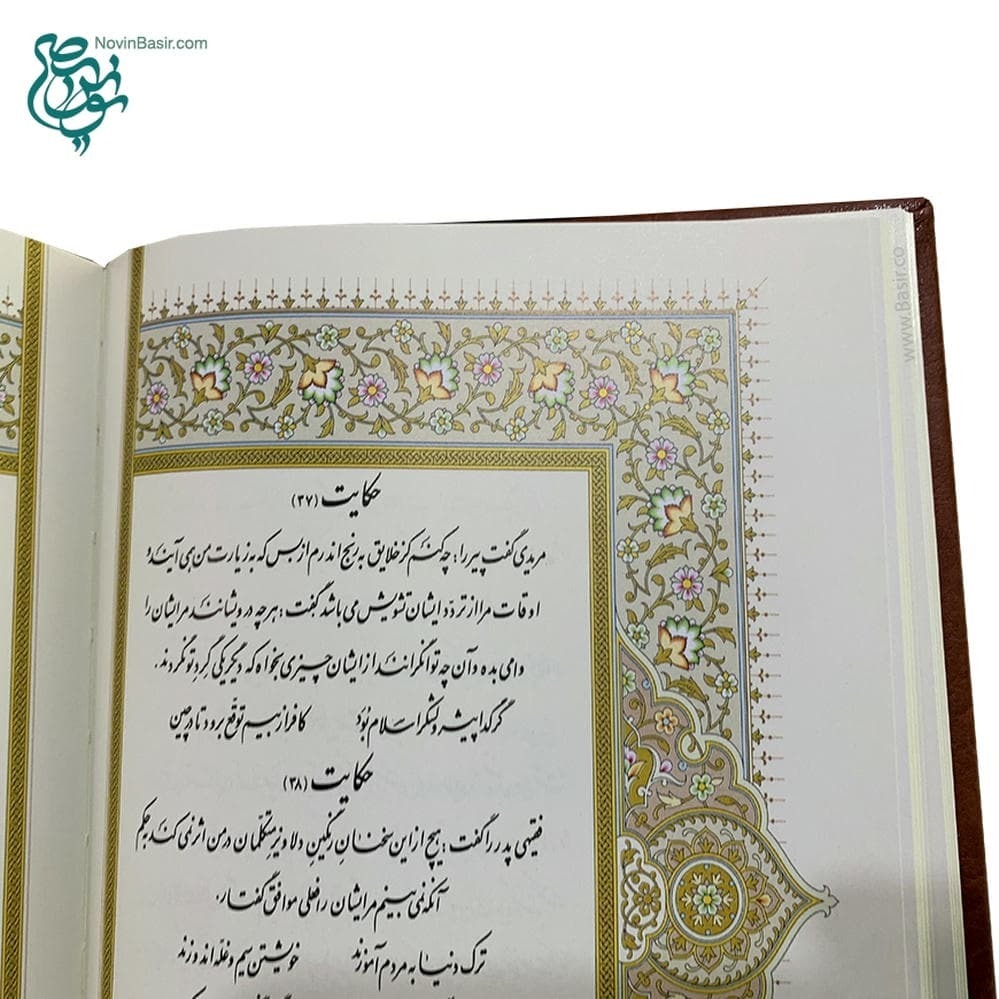 NovinBasir.com
www.Basir.co
حکایت (۳۷)
مریدی گفت پیر را: چه کنم کز خلایق به رنج اندرم از بس که به زیارت من همی آیند و
اوقات مرا از تردّد ایشان تشویش می باشد گفت: هر چه درویشانند مر ایشان را
وامی بده و آن چه توانگرانند از ایشان چیزی بخواه که دیگر یکی گِردِ تو نگردند.
گر گدا پیشرو لشکر اسلام بُوَد کافر از بیم توقّع برود تا در چین
حکایت (۳۸)
فقیهی پدر را گفت: هیچ از این سخنانِ رنگینِ دلاویزِ متکلّمان در من اثر نمی کند به حکم
آنکه نمی بینم مر ایشان را فعلی موافق گفتار.
ترک دنیا به مردم آموزند خویشتن سیم و غلّه اندوزند